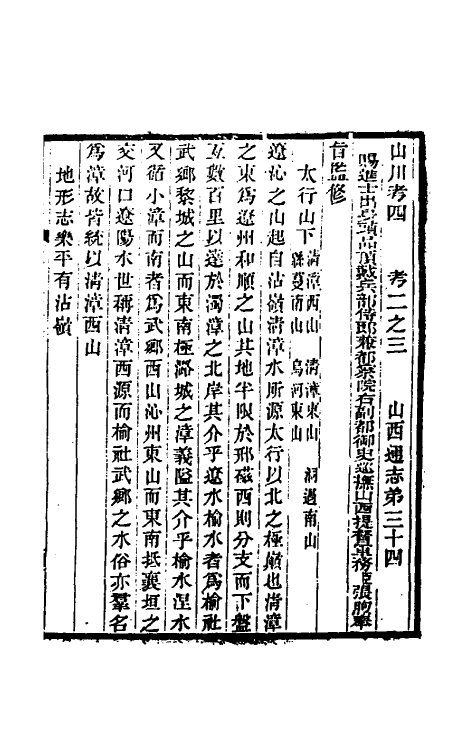 山川考四　考二之三　山西通志第三十四
賜進士出身頭品頂戴兵部侍郎兼都察院右副都御史巡撫山西提督軍務臣張煦奉
旨監修
太行山下　清漳西山　清漳東山　洞過南山
縣蔓南山　烏河東山
遼沁之山起自沾嶺清漳水所源太行以北之極巔也清漳
之東爲遼州和順之山其地半限於邢磁西則分支而下盤
亙數百里以達於濁漳之北岸其介乎遼水榆水者爲榆社
武鄉黎城之山而東南極潞城之漳義隘其介乎榆水涅水
又循小漳而南者爲武鄉西山沁州東山而東南抵襄垣之
交河口遼陽水世稱清漳西源而榆社武鄉之水俗亦羣名
爲漳故皆統以清漳西山
地形志樂平有沾嶺